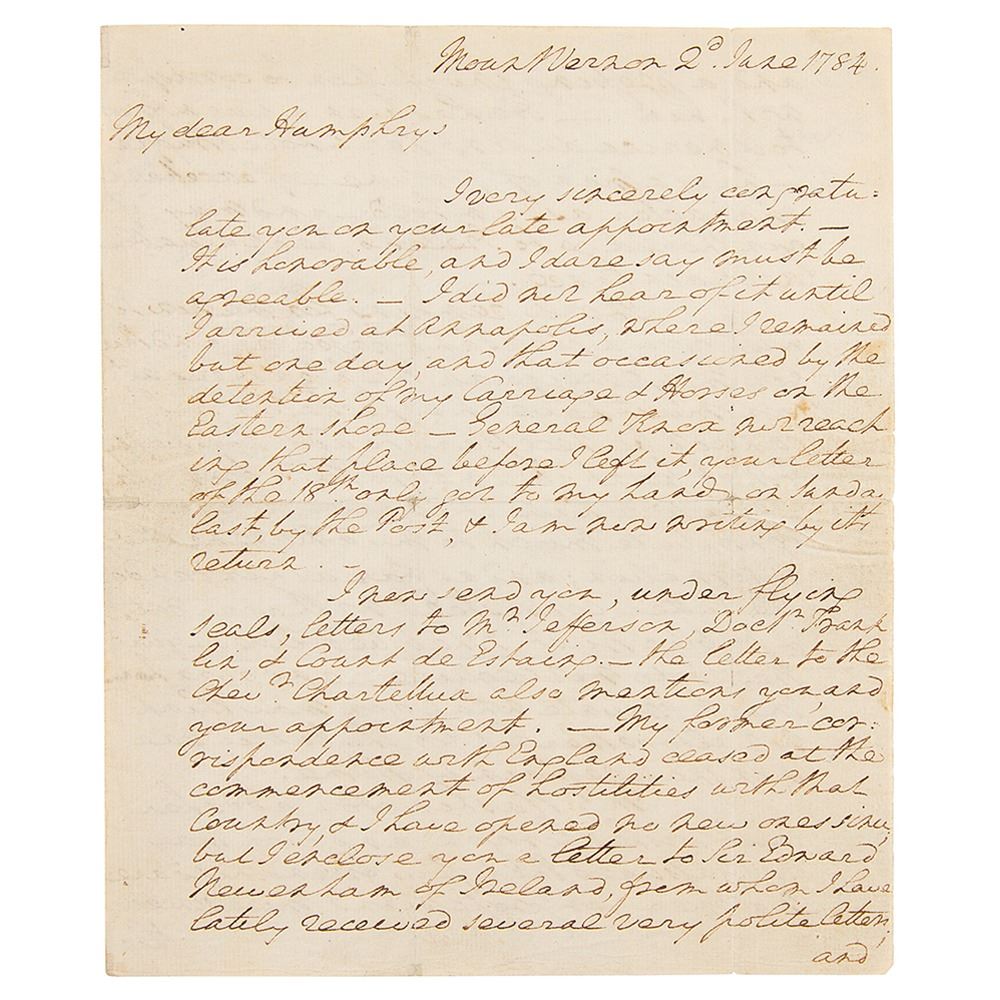 Mount Vernon 2d. June 1784.
My dear Humphrys
I very sincerely congratu=
late you on your late appointment. —
It is honorable, and I dare say must be
agreeable. — I did not hear of it until
I arrived at Annapolis, where I remained
but one day, and that occasioned by the
detention of my Carriage & Horses on the
Eastern shore — General Knox not reach
ing that place before I left it, your letter
of the 18th. only got to my hands on Sunda
last, by the Post, & I am now writing by its
return. —
I now send you, under flying
seals, letters to Mr. Jefferson, Doctr. Frank
lin, & Count de Estaing. — the letter to the
Chevr. Chartellux also mentions you, and
your appointment. — My former cor=
rispondence with England ceased at the
commencement of hostilities with that
Country, & I have opened no new ones since,
but I enclose you a letter to Sir Edward
Newenham of Ireland, from whom I have
lately received several very polite letters,
and